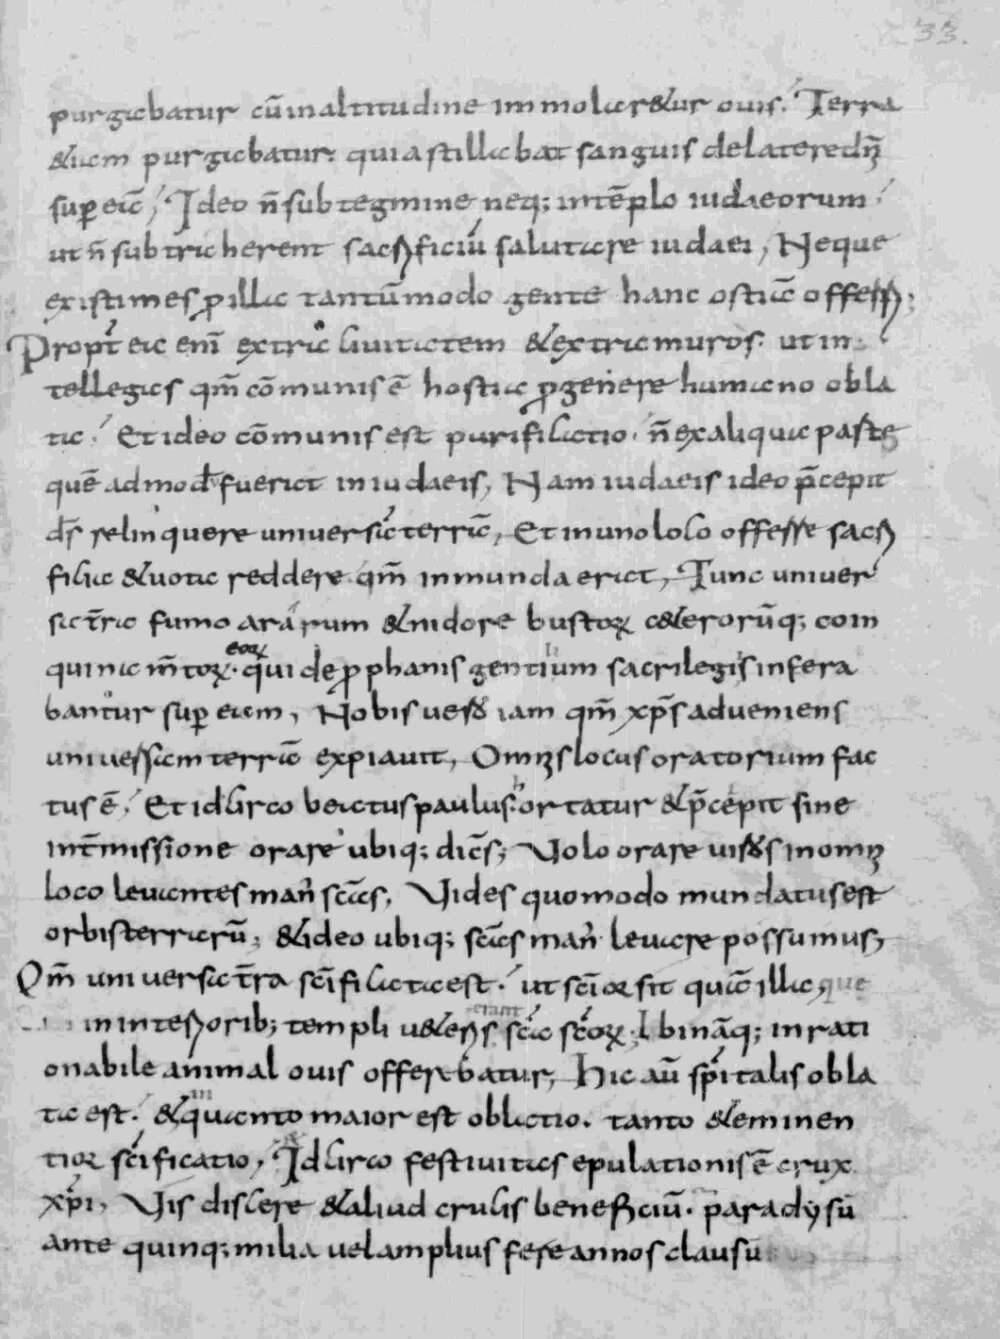 33.
purgabatur cū in altitudine immolaretur ouis. Terra
etiam purgabatur. quia stillabat sanguis de latere dn̄i
sup eā, Ideo n̄ sub tegmine neq; in tēplo iudaeorum
ut n̄ subtraherent sacrificiū salutare iudaei, Neque
existimes ꝑ illa tantūmodo gente hanc ostiā offerri;
Propt̄ ea enī extra ciuitatem & extra muros. ut in
tellegas qm̄ cōmunis ē hostia ꝑ genere humano obla
ta. Et ideo cōmunis est purificatio. n̄ ex aliqua parte
quē ad mod̄ fuerat in iudaeis, Nam iudaeis ideo p̄cepit
ds̄ relinquere uniuersā terrā, Et in uno loco offerre sacri
ficia & uota reddere qm̄ inmunda erat, Tunc uniuer
sa t̄ra fumo ararum & nidore bustoꝝ ceterorūq; coin
quinam̄toꝝ. eoꝝ qui de ꝓphanis gentium sacrilegis infera
bantur sup eam, Nobis uero iam qm̄ xp̄s adueniens
uniuersam terrā expiauit, Omnis locus oratorium fac
tus ē, Et idcirco beatus paulus hortatur & p̄cepit sine
int̄missione orare ubiq; dicēs; Uolo orare uiros in omni
loco leuantes man̄ scās, Uides quomodo mundatus est
orbis terrarū; & ideo ubiq; scās man̄ leuare possumus,
Qm̄ uniuersa t̄ra scīficata est. ut scīor sit quā illa, que
in interiorib; templi ueteris erant scā scōꝝ. Ibi nāq; in rati
onabile animal ouis offerebatur, Hic aū sp̄italis obla
ta est. & in quanto maior est oblatio. tanto & eminen
tior scīficatio, Idcirco festiuitas epulationis ē crux
xp̄i, Uis discere & aliud crucis beneficiū. paradysū
ante quinq; milia uel amplius fere annos clausū